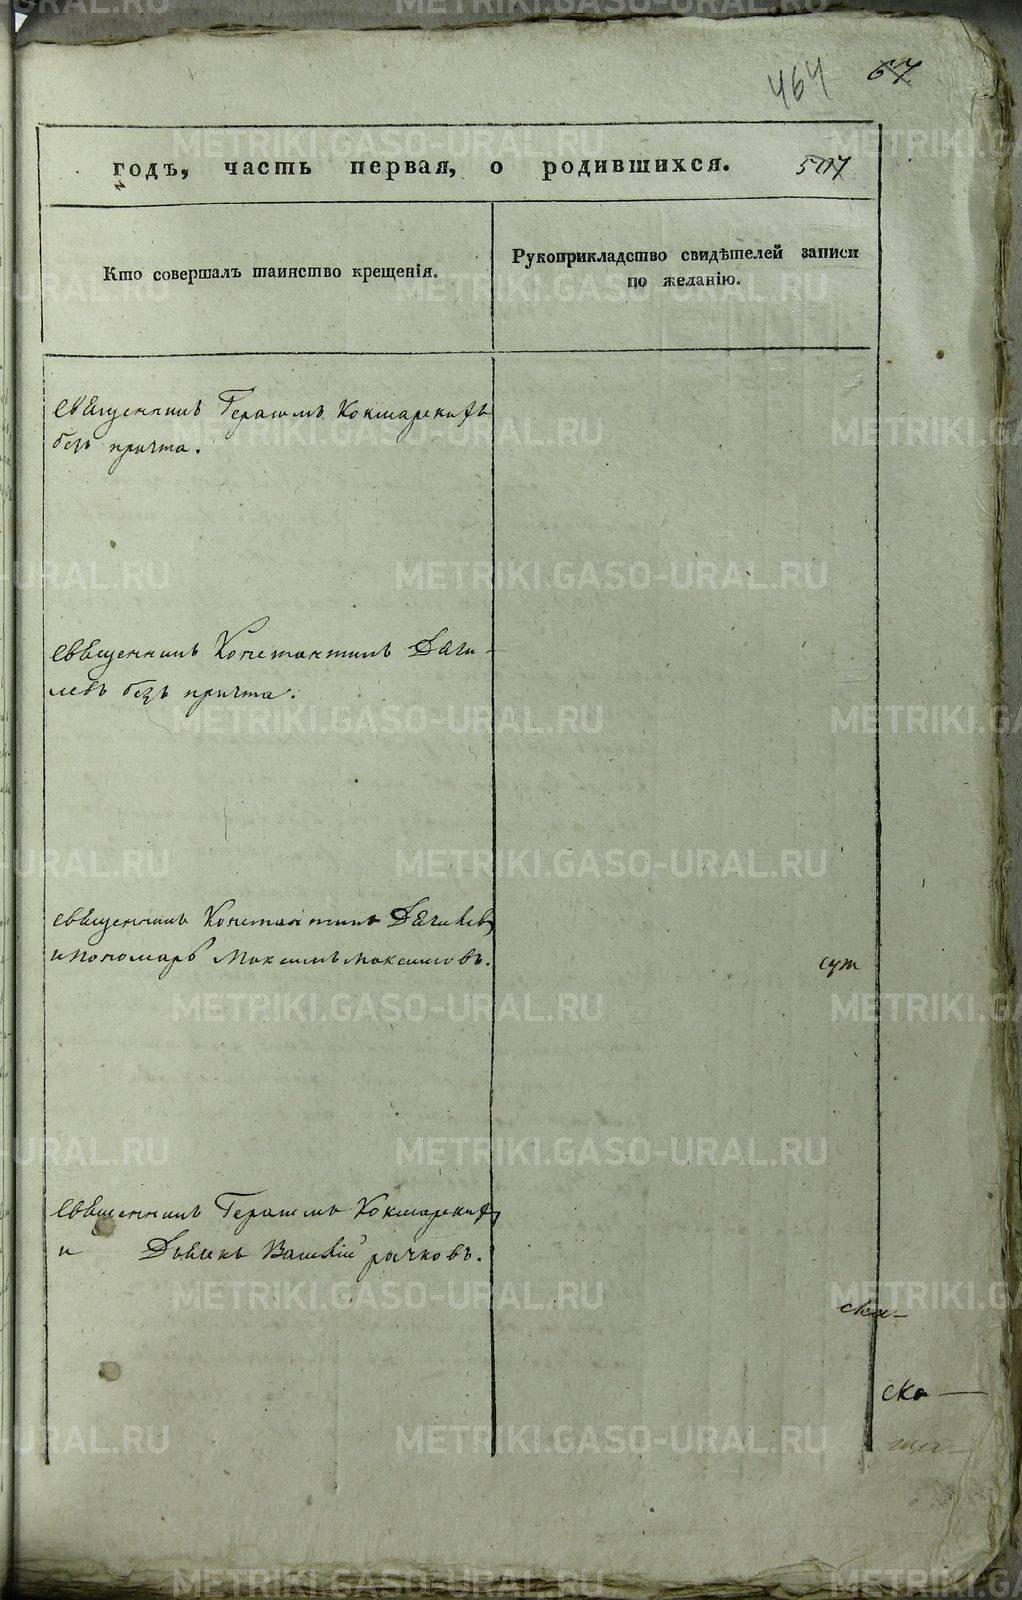 464 67
годъ, часть первая, о родившихся. 507
Кто совершалъ таинство крещенія.
Рукоприкладство свидѣтелей записи
по желанію.
Священникъ Герасимъ Кокшарскихъ
безъ причта.
Священникъ Константинъ Дяги-
левъ безъ причта.
Священникъ Константинъ Дягилевъ
и пономарь Максимъ Максимовъ.
сут
Священникъ Герасимъ Кокшарскихъ
и Дьячекъ Василій Рычковъ.
ска-
ска—
METRIKI.GASO-URAL.RU